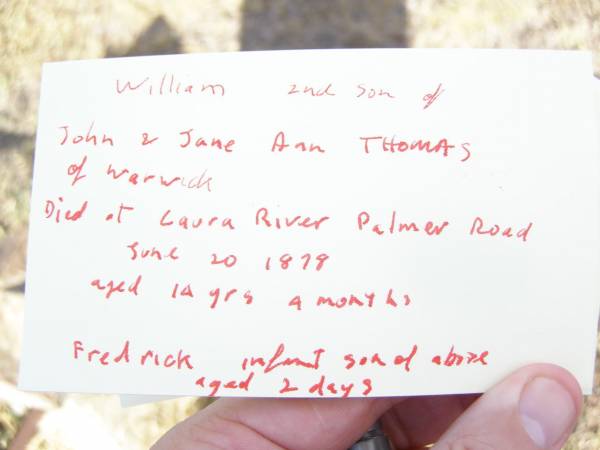 William 2nd son of
John & Jane Ann THOMAS
of Warwick
Died at Laura River Palmer Road
June 20 1878
aged 14 yrs 9 months
Fredrick infant son of above
aged 2 days